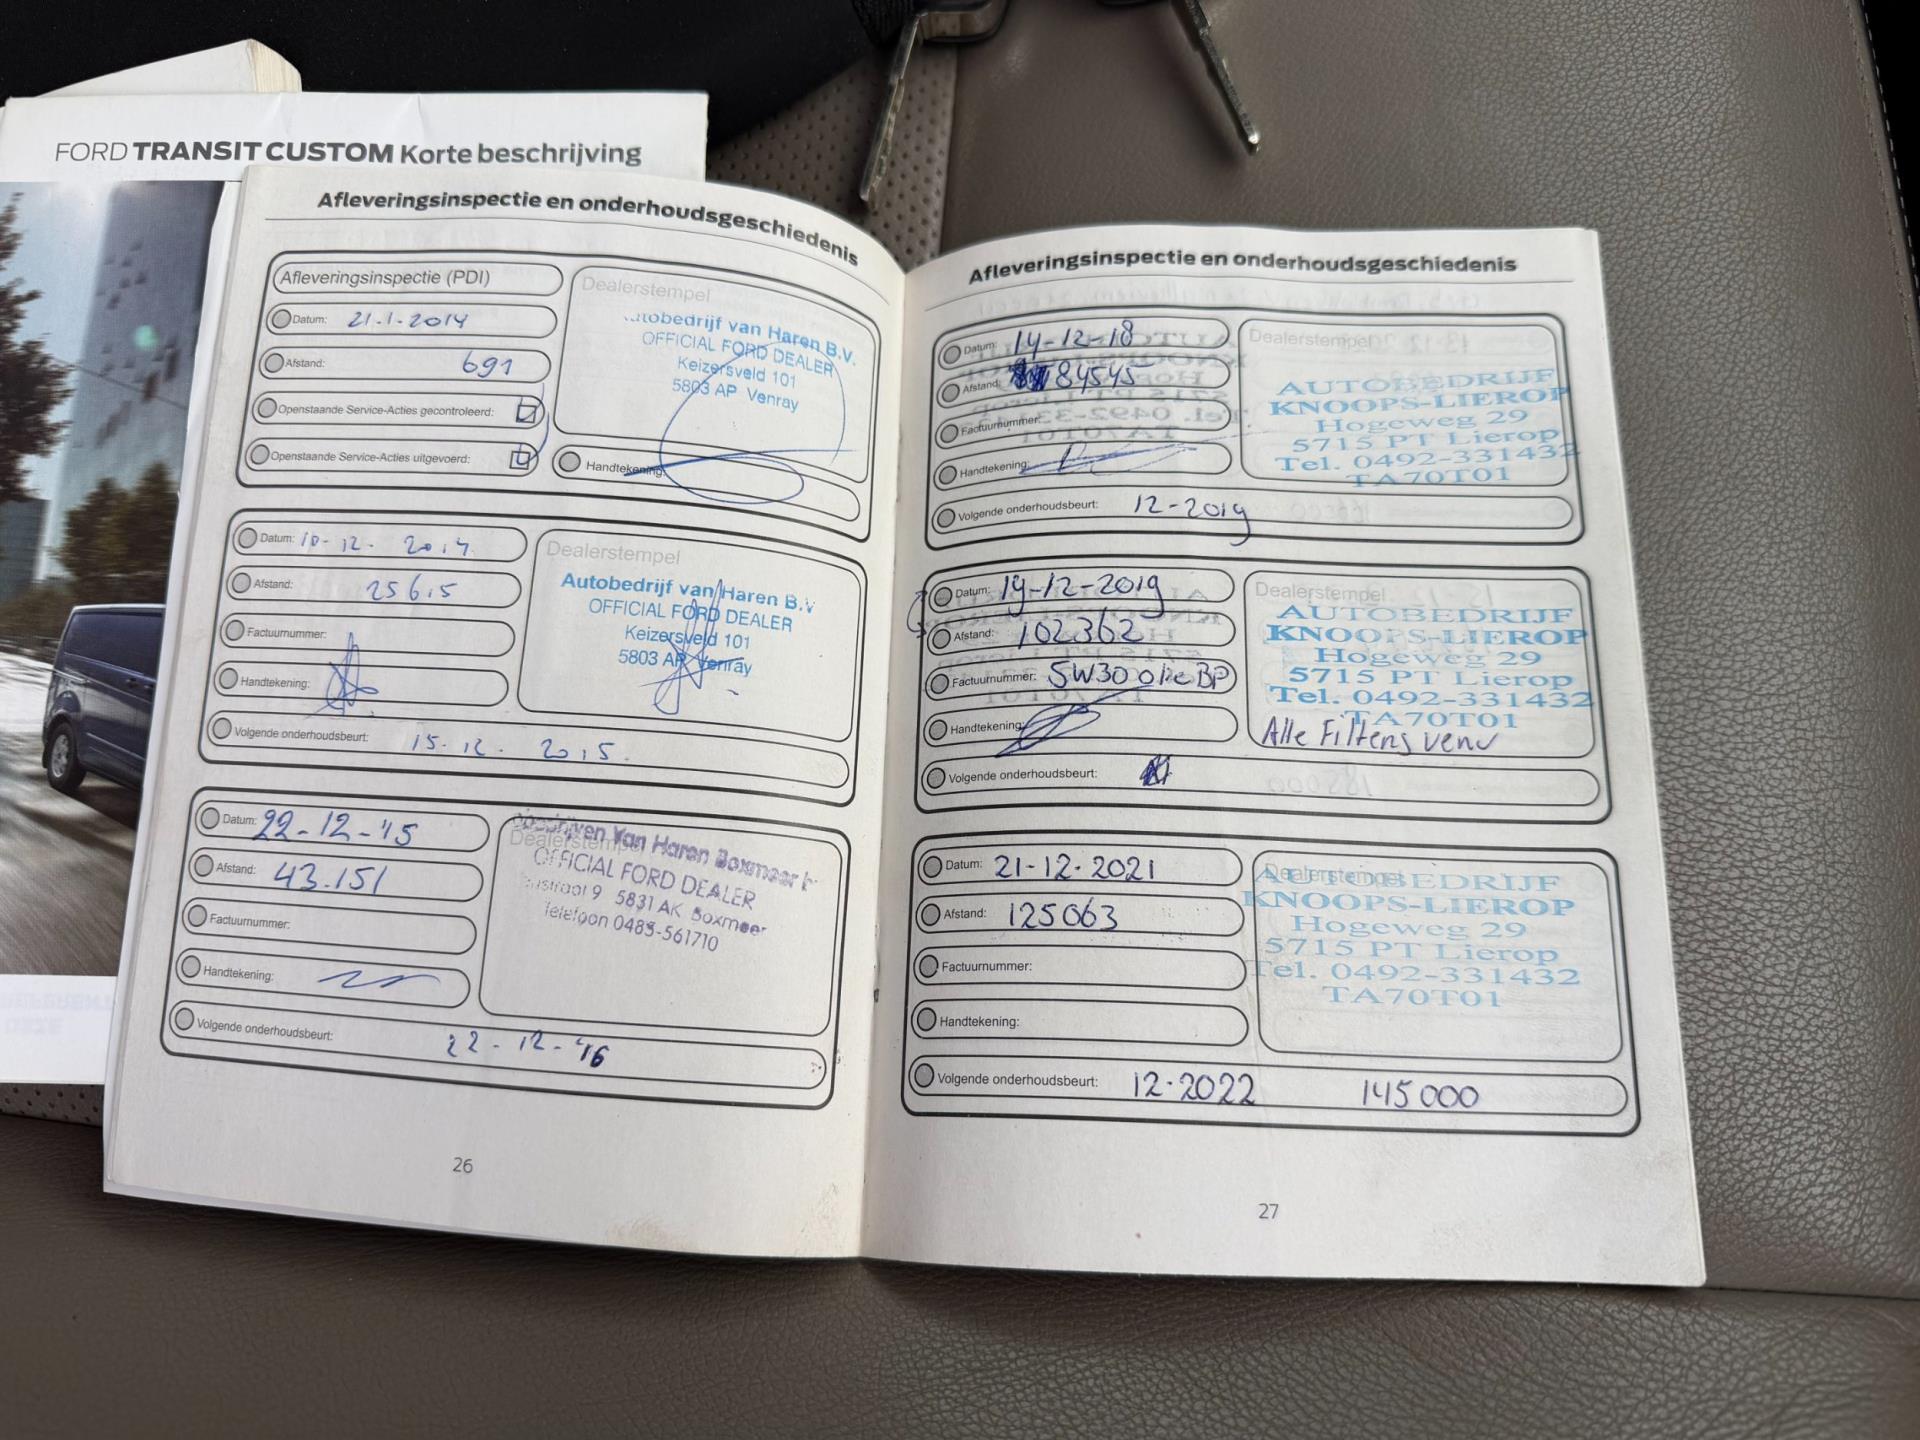 FORD TRANSIT CUSTOM Korte beschrijving
Afleveringsinspectie en onderhoudsgeschiedenis
Afleveringsinspectie (PDI)
Datum: 21-1-2014
Afstand: 691
Openstaande Service-Acties gecontroleerd:
Openstaande Service-Acties uitgevoerd:
Dealerstempel
Autobedrijf van Haren B.V.
OFFICIAL FORD DEALER
Keizersveld 101
5803 AP Venray
Handtekening:
Datum: 10-12-2014
Afstand: 25615
Factuurnummer:
Handtekening:
Volgende onderhoudsbeurt: 15-12-2015.
Dealerstempel
Autobedrijf van Haren B.V
OFFICIAL FORD DEALER
Keizersveld 101
5803 AP Venray
Datum: 22-12-'15
Afstand: 43.151
Factuurnummer:
Handtekening:
Volgende onderhoudsbeurt: 22-12-'16
Dealerstempel
Van Haren Boxmeer
OFFICIAL FORD DEALER
9 5831 AK Boxmeer
Telefoon 0485-561710
26
Afleveringsinspectie en onderhoudsgeschiedenis
Datum: 14-12-18
Afstand: 84545
Factuurnummer:
Handtekening:
Volgende onderhoudsbeurt: 12-2019
Dealerstempel
AUTOBEDRIJF
KNOOPS-LIEROP
Hogeweg 29
5715 PT Lierop
Tel. 0492-331432
TA70T01
Datum: 19-12-2019
Afstand: 102362
Factuurnummer: 5W30 olie BP
Handtekening:
Volgende onderhoudsbeurt:
Dealerstempel
AUTOBEDRIJF
KNOOPS-LIEROP
Hogeweg 29
5715 PT Lierop
Tel. 0492-331432
TA70T01
Alle Filters
Datum: 21-12-2021
Afstand: 125063
Factuurnummer:
Handtekening:
Volgende onderhoudsbeurt: 12-2022 145000
Dealerstempel
AUTOBEDRIJF
KNOOPS-LIEROP
Hogeweg 29
5715 PT Lierop
Tel. 0492-331432
TA70T01
27